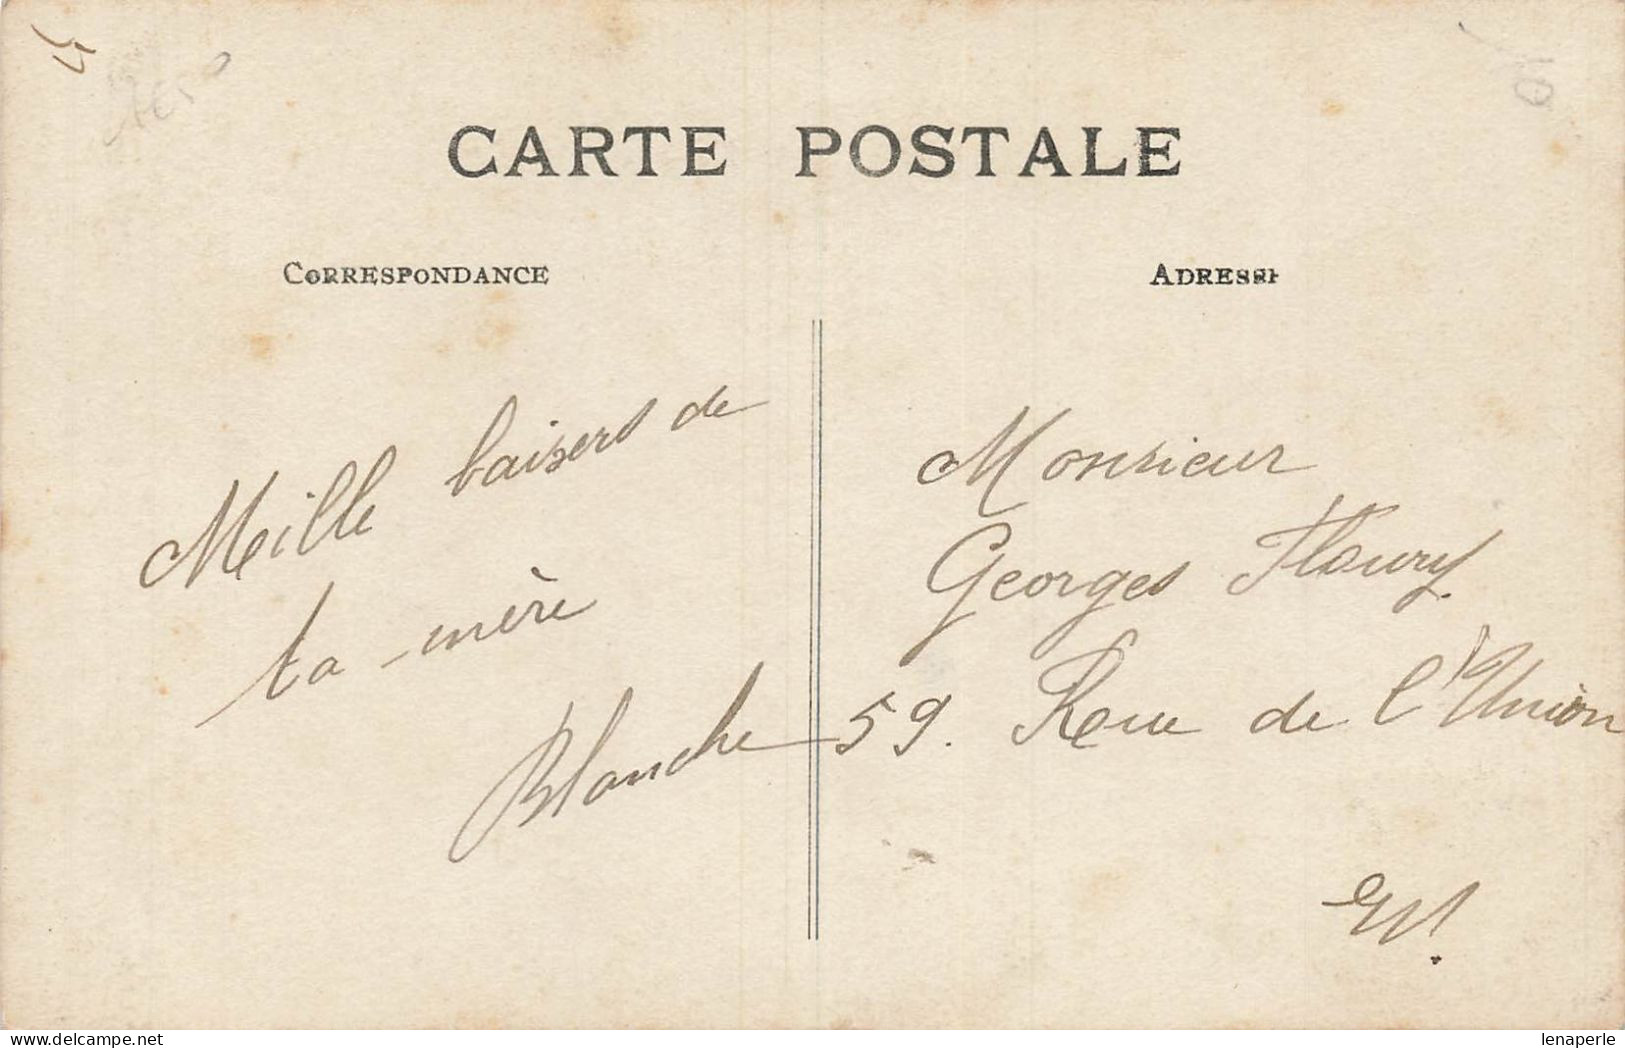 CARTE POSTALE
CORRESPONDANCE
ADRESSE
Mille baisers de
ta mère
Blanche
Monsieur
Georges Fleury
59. Rue de l'Union
delcampe.net
lenaperle